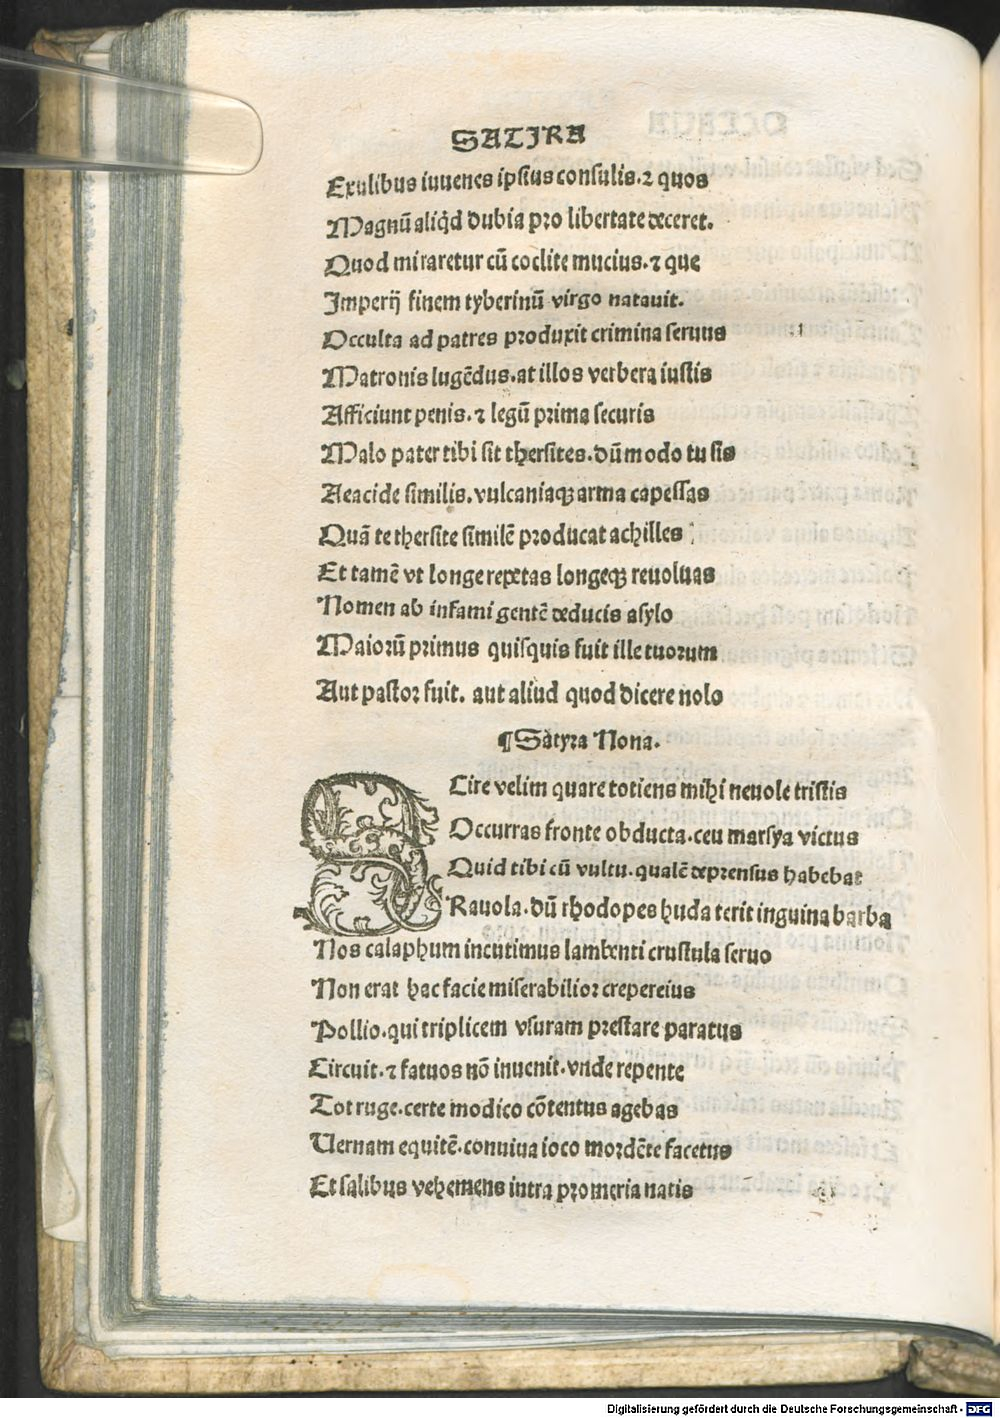 SATIRA
Exulibus iuuenes ipsius consulis.⁊ quos
Magnũ aliq̃d dubia pro libertate deceret.
Quod miraretur cũ coclite mucius.⁊ que
Imperij finem tyberinũ virgo natauit.
Occulta ad patres produxit crimina seruus
Matronis lugẽdus.at illos verbera iustis
Afficiunt penis.⁊ legũ prima securis
Malo pater tibi sit thersites.dũmodo tu sis
Aeacide similis.vulcaniaqꝫ arma capessas
Quã te thersite similẽ producat achilles
Et tamẽ vt longe repetas longeqꝫ reuoluas
Nomen ab infami gentẽ deducis asylo
Maiorũ primus quisquis fuit ille tuorum
Aut pastor fuit. aut aliud quod dicere nolo
¶Satyra Nona.
SCire velim quare totiens mihi neuole tristis
Occurras fronte obducta.ceu marsya victus
Quid tibi cũ vultu.qualẽ deprensus habebat
Rauola.dũ rhodopes huda terit inguina barba
Nos calaphum incutimus lambenti crustula seruo
Non erat hac facie miserabilior crepereius
Pollio.qui triplicem vsuram prestare paratus
Circuit.⁊ fatuos nõ inuenit.vnde repente
Tot ruge.certe modico cõtentus agebas
Uernam equitẽ.conuiua ioco mordẽte facetus
Et salibus vehemens intra promeria natis
Digitalisierung gefördert durch die Deutsche Forschungsgemeinschaft - DFG